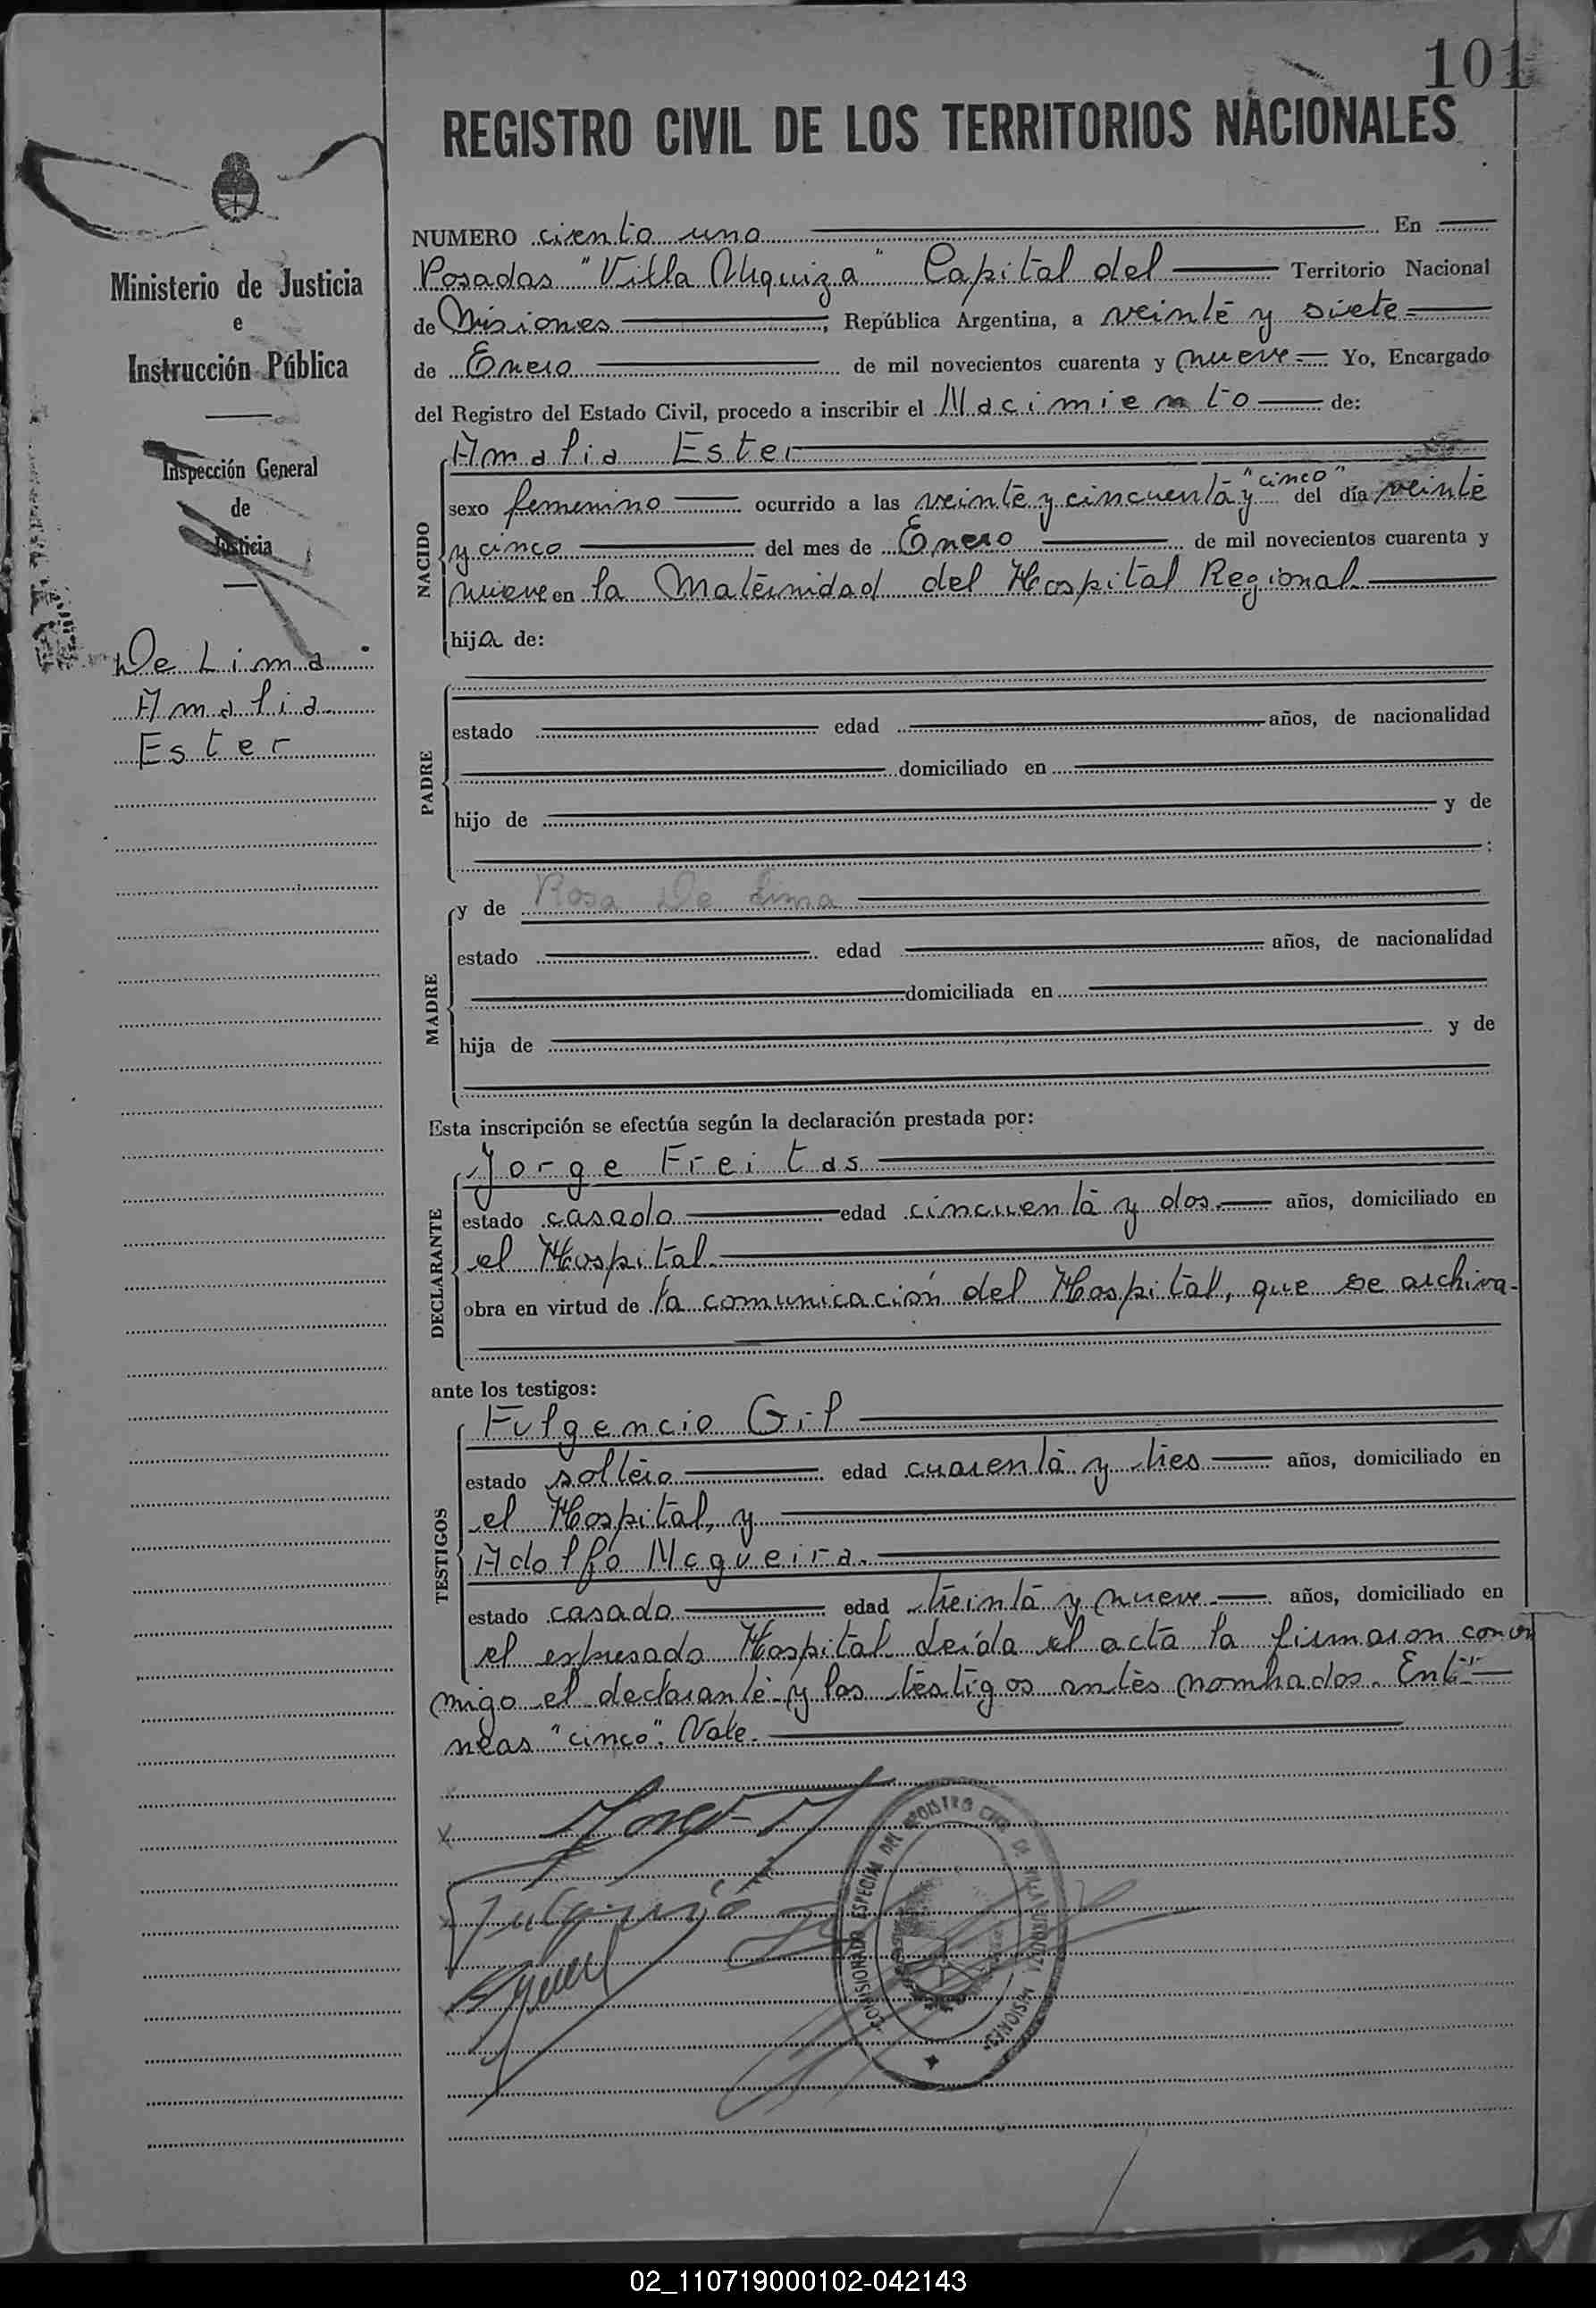 101
REGISTRO CIVIL DE LOS TERRITORIOS NACIONALES
Ministerio de Justicia
e
Instrucción Pública
Inspección General
de
Justicia
De Lima
Amalia
Ester
NUMERO ciento uno En
Posadas "Villa Urquiza" Capital del Territorio Nacional
de Misiones, República Argentina, a veinte y siete
de Enero de mil novecientos cuarenta y nueve Yo, Encargado
del Registro del Estado Civil, procedo a inscribir el Nacimiento de:
NACIDO
Amalia Ester
sexo femenino ocurrido a las veinte y cincuenta y "cinco" del día veinte
y cinco del mes de Enero de mil novecientos cuarenta y
nueve en la Maternidad del Hospital Regional
hija de:
PADRE
estado edad años, de nacionalidad
domiciliado en
hijo de y de
;
MADRE
y de Rosa De Lima
estado edad años, de nacionalidad
domiciliada en
hija de y de
Esta inscripción se efectúa según la declaración prestada por:
DECLARANTE
Jorge Freitas
estado casado edad cincuenta y dos años, domiciliado en
el Hospital
obra en virtud de la comunicación del Hospital, que se archiva.
ante los testigos:
TESTIGOS
Fulgencio Gil
estado soltero edad cuarenta y tres años, domiciliado en
el Hospital, y
Adolfo Nogueira.
estado casado edad treinta y nueve años, domiciliado en
el expresado Hospital. Leída el acta la firmaron con
migo el declarante y los testigos antes nombrados. Entrelí
neas "cinco". Vale.
COMISIONADO ESPECIAL DEL REGISTRO CIVIL DE VILLA URQUIZA MISIONES
02_110719000102-042143